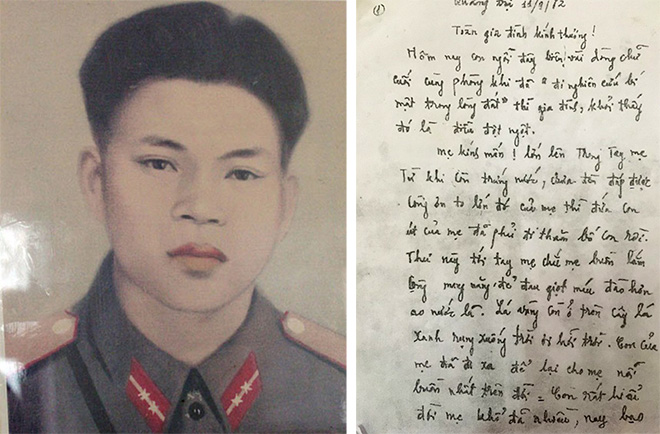 (1)
Quảng Trị 11/9/72
Toàn gia đình kính thương!
Hôm nay con ngồi đây biên vài dòng chữ
cuối cùng phòng khi đã "đi nghiên cứu bí
mật trong lòng đất" thì gia đình, khỏi thấy
đó là điều đột ngột.
Mẹ kính mến! lớn lên trong tay mẹ
Từ khi còn trứng nước, chưa đền đáp được
công ơn to lớn đó của mẹ thì đứa con
út của mẹ đã phải đi thăm bố con rồi.
Thư này tới tay mẹ chắc mẹ buồn lắm
lòng mang nặng đẻ đau giọt máu đào hơn
ao nước lã. Lá vàng còn ở trên cây lá
xanh rụng xuống trời ơi hỡi trời. Con của
mẹ đã đi xa để lại cho mẹ nỗi
buồn nhất trên đời = Con rất hiểu
đời mẹ khổ đã nhiều, nay bao